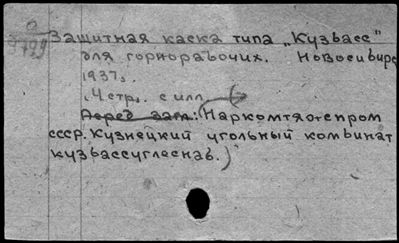 О
9799
Защитная каска типа „Кузбасс"
для горнорабочих. Новосибирс
1937г.
4 стр. с илл.
Перед заг.: Наркомтяжпром
ссср. Кузнецкий угольный комбинат
кузбассуглеснаб.)